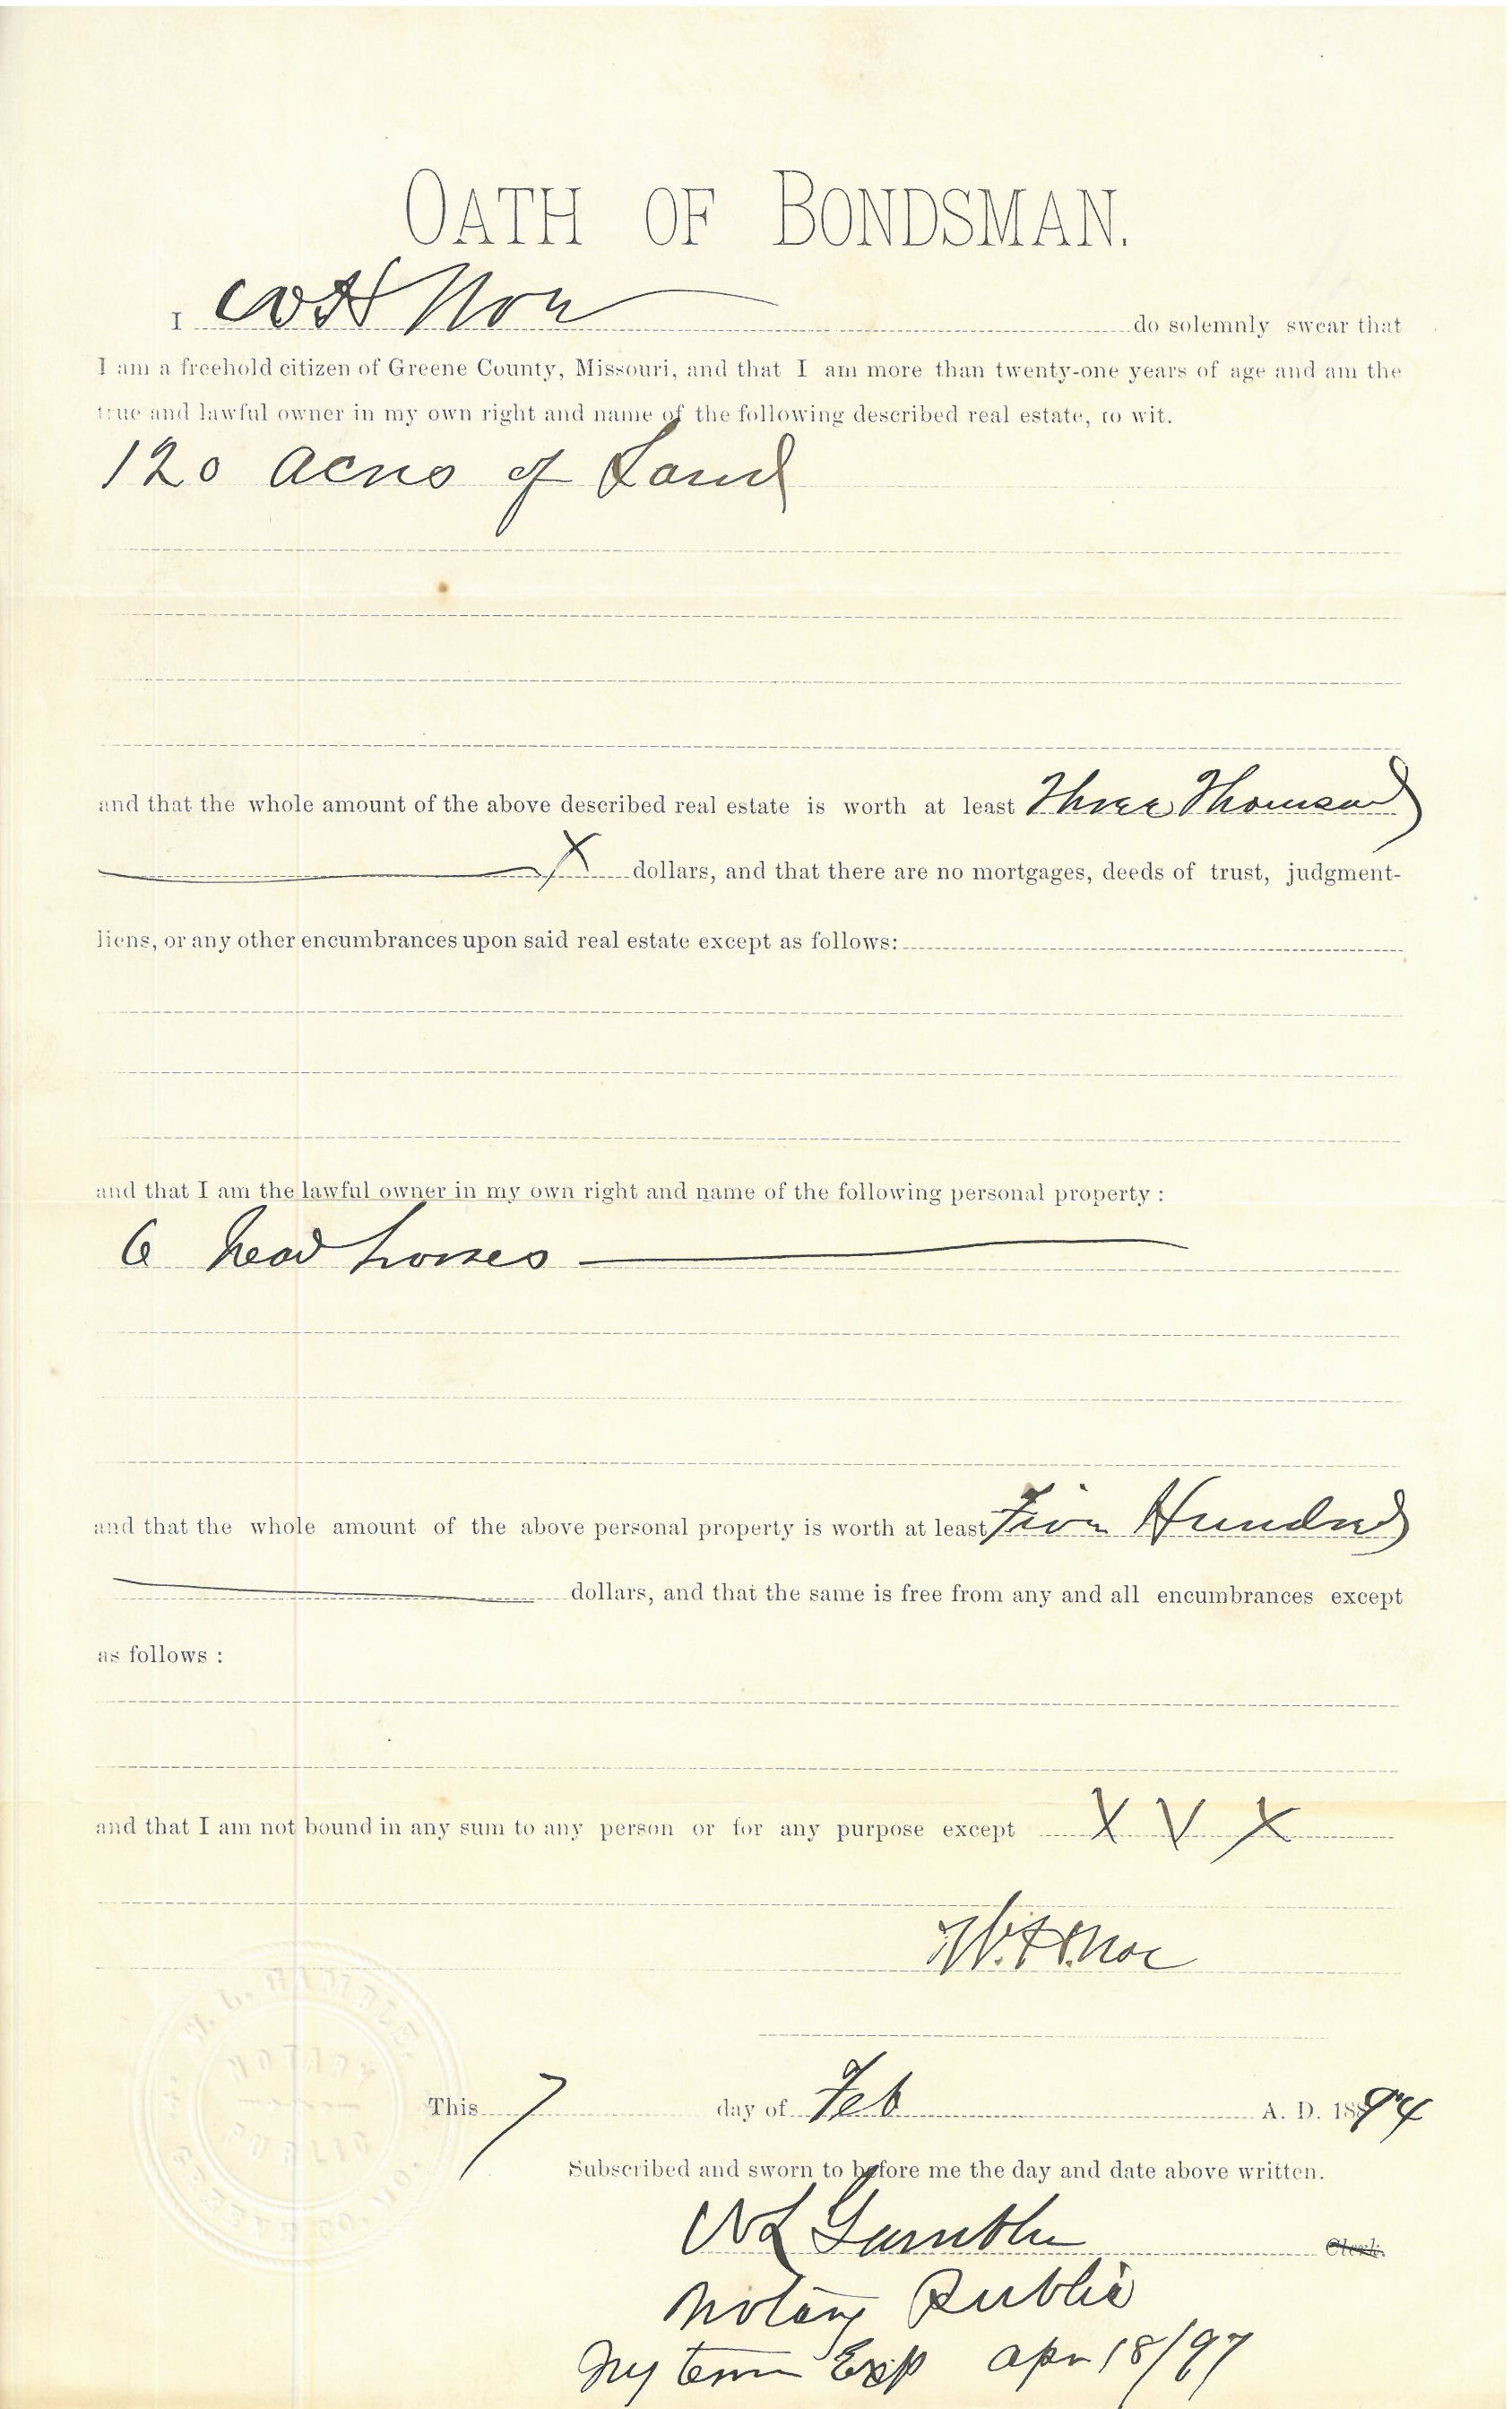 OATH OF BONDSMAN.
I W H Noe do solemnly swear that
I am a freehold citizen of Greene County, Missouri, and that I am more than twenty-one years of age and am the
true and lawful owner in my own right and name of the following described real estate, to wit.
120 acres of Land
and that the whole amount of the above described real estate is worth at least Three Thousand
X dollars, and that there are no mortgages, deeds of trust, judgment-
liens, or any other encumbrances upon said real estate except as follows:
and that I am the lawful owner in my own right and name of the following personal property :
6 head horses
and that the whole amount of the above personal property is worth at least Five Hundred
dollars, and that the same is free from any and all encumbrances except
as follows :
and that I am not bound in any sum to any person or for any purpose except X V X
W. H. Noe
W. L. GAMBLE.
NOTARY
PUBLIC
GREENE CO. MO.
This 7 day of Feb A. D. 1894
Subscribed and sworn to before me the day and date above written.
W L Gamble Clerk.
Notary Public
My term Exp apr 18/97